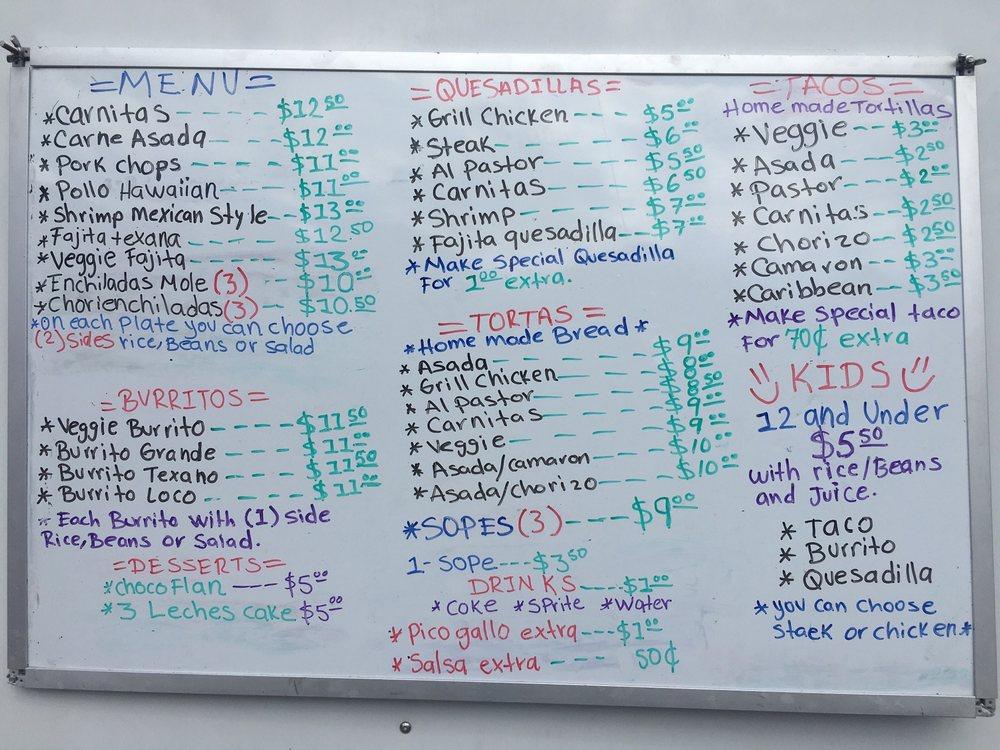 =MENU=
*Carnitas ---- $12.50
*Carne Asada ---- $12.00
*Pork chops ---- $11.00
*Pollo Hawaiian---- $11.00
*Shrimp Mexican Style-- $13.00
*Fajita texana ---- $12.50
*Veggie Fajita ---- $13.00
*Enchiladas Mole (3) -- $10.00
*Chorienchiladas (3) -- $10.50
*on each Plate you can choose
(2) sides rice, Beans or salad
=BURRITOS=
*Veggie Burrito ---- $11.50
*Burrito Grande ---- $11.00
*Burrito Texano ---- $11.50
*Burrito Loco ---- $11.00
*Each Burrito with (1) side
Rice, Beans or Salad.
=DESSERTS=
*choco Flan --- $5.00
*3 Leches cake $5.00
=QUESADILLAS=
*Grill Chicken --- $5.00
*Steak ---- $6.00
*Al Pastor ---- $5.50
*Carnitas ---- $6.50
*Shrimp ---- $7.00
*Fajita quesadilla -- $7.00
*Make Special Quesadilla
For 1.00 extra.
=TORTAS=
*Home made Bread*
*Asada ---- $9.00
*Grill Chicken ----
*Al Pastor ----
*Carnitas ---- $9.00
*Veggie ---- $9.00
*Asada/camaron ---- $10.00
*Asada/chorizo ---- $10.00
*SOPES (3) --- $9.00
1- Sope --- $3.50
DRINKS ---- $1.00
*Coke *Sprite *Water
*Pico gallo extra --- $1.00
*Salsa extra --- 50¢
=TACOS=
Home made Tortillas
*Veggie -- $3.00
*Asada -- $2.50
*Pastor -- $2.00
*Carnitas -- $2.50
*Chorizo -- $2.50
*Camaron -- $3.00
*Caribbean -- $3.50
*Make special taco
For 70¢ extra
KIDS
12 and Under
$5.50
with rice/Beans
and Juice.
*Taco
*Burrito
*Quesadilla
*you can choose
staek or chicken*